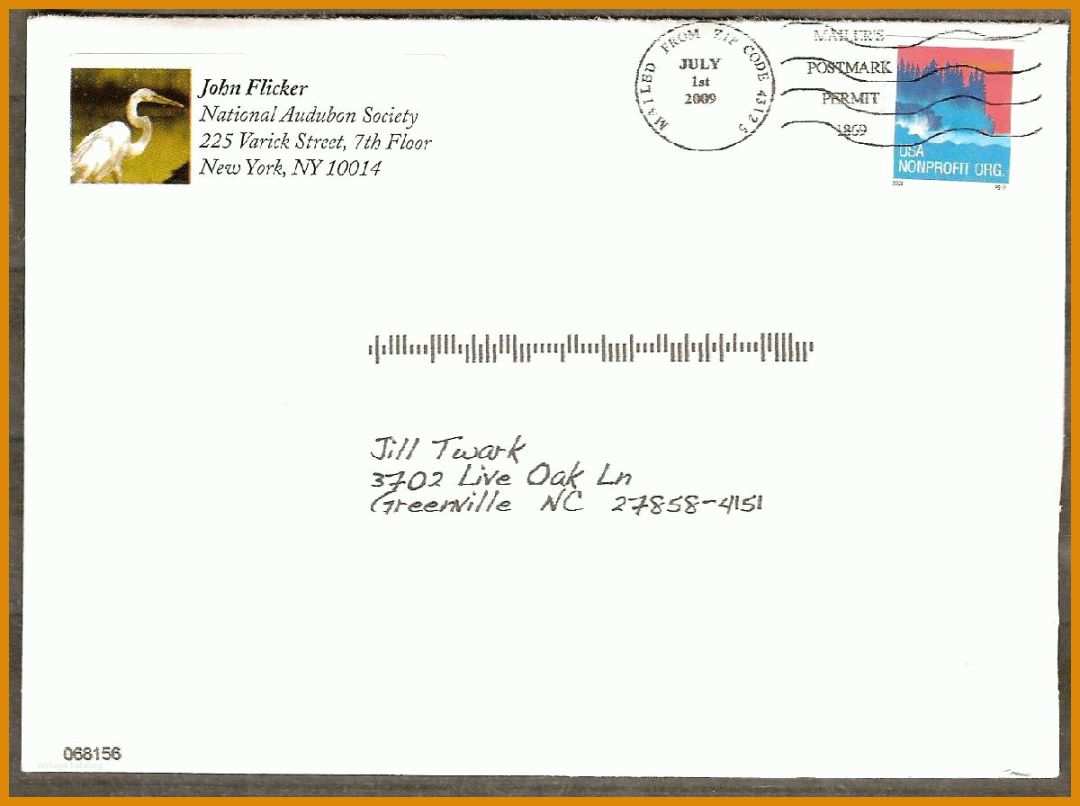 John Flicker
National Audubon Society
225 Varick Street, 7th Floor
New York, NY 10014
MAILED FROM ZIP CODE 43125
JULY
1st
2009
MAILER'S
POSTMARK
PERMIT
1869
USA
NONPROFIT ORG.
Jill Twark
3702 Live Oak Ln
Greenville NC 27858-4151
068156